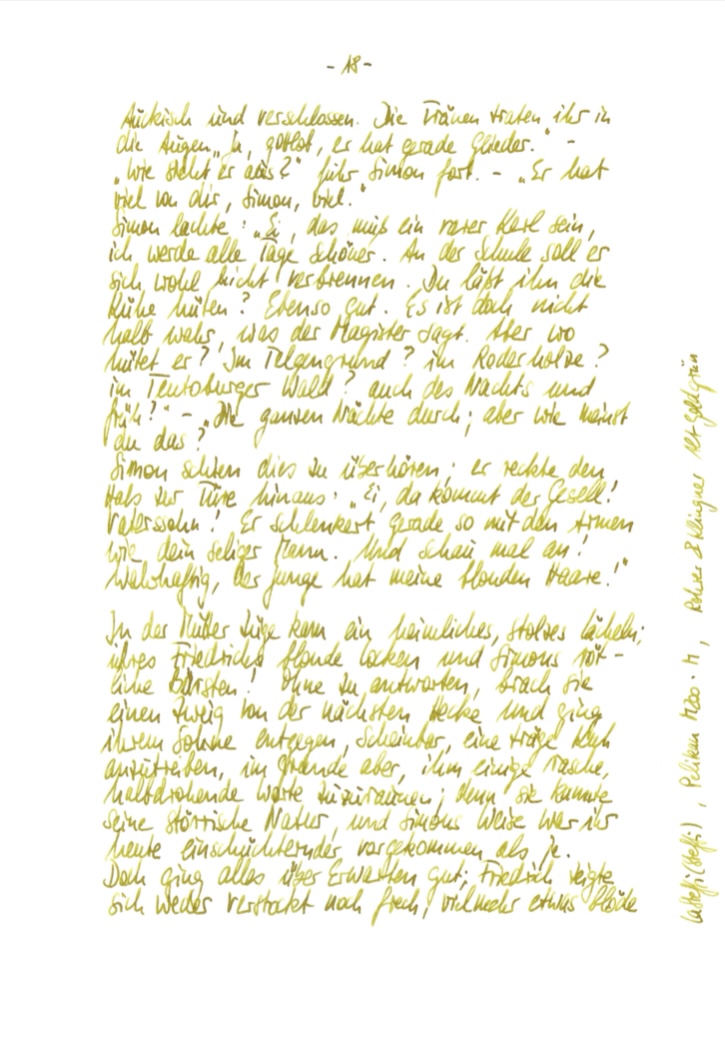 - 18 -
tückisch und verschlossen. Die Tränen traten ihr in
die Augen „Ja, gottlob, er hat gerade Glieder." –
„Wie sieht er aus?" fuhr Simon fort. – „Er hat
viel von dir, Simon, viel."
Simon lachte: „Ei, das muß ein rarer Kerl sein,
ich werde alle Tage schöner. An der Schule soll er
sich wohl nicht verbrennen. Du läßt ihn die
Kühe hüten? Ebenso gut. Es ist doch nicht
halb wahr, was der Magister sagt. Aber wo
hütet er? Im Telgengrund? im Roderholze?
im Teutoburger Wald? auch des Nachts und
früh?" – „Die ganzen Nächte durch; aber wie meinst
du das?"
Simon schien dies zu überhören; er reckte den
Hals zur Türe hinaus: „Ei, da kommt der Gesell!
Vaterssohn! Er schlenkert gerade so mit den Armen
wie dein seliger Mann. Und schau mal an!
Wahrhaftig, der Junge hat meine blonden Haare!"
In der Mutter Züge kam ein heimliches, stolzes Lächeln;
ihres Friedrichs blonde Locken und Simons röt-
liche Bürsten! Ohne zu antworten, brach sie
einen Zweig von der nächsten Hecke und ging
ihrem Sohne entgegen, scheinbar, eine träge Kuh
anzutreiben, im Grunde aber, ihm einige rasche,
halbdrohende Worte zuzuraunen; denn sie kannte
seine störrische Natur, und Simons Weise war ihr
heute einschüchternder vorgekommen als je.
Doch ging alles über Erwarten gut; Friedrich zeigte
sich weder verstockt noch frech, vielmehr etwas blöde
(Steffi), Pelikan M200 · M, Rohrer & Klingner Alt-Goldgrün